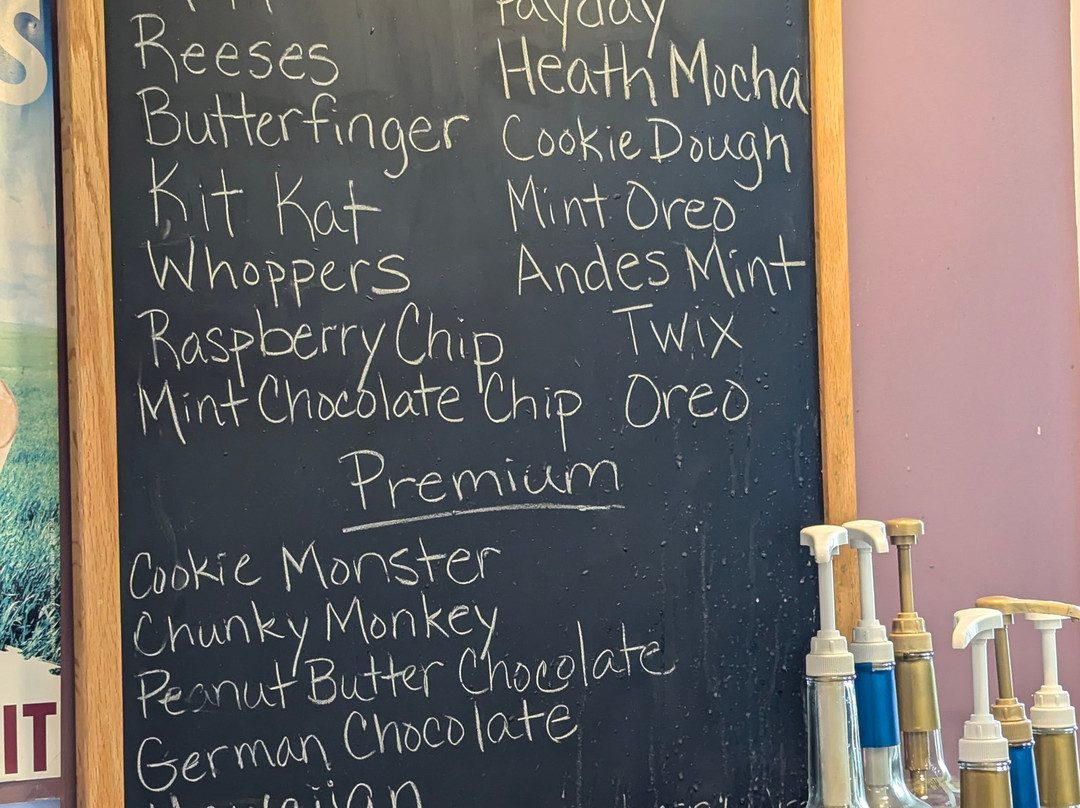 Reeses
Butterfinger
Kit Kat
Whoppers
Raspberry Chip
Mint Chocolate Chip
Payday
Heath Mocha
Cookie Dough
Mint Oreo
Andes Mint
Twix
Oreo
Premium
Cookie Monster
Chunky Monkey
Peanut Butter Chocolate
German Chocolate
Hawaiian
S
IT